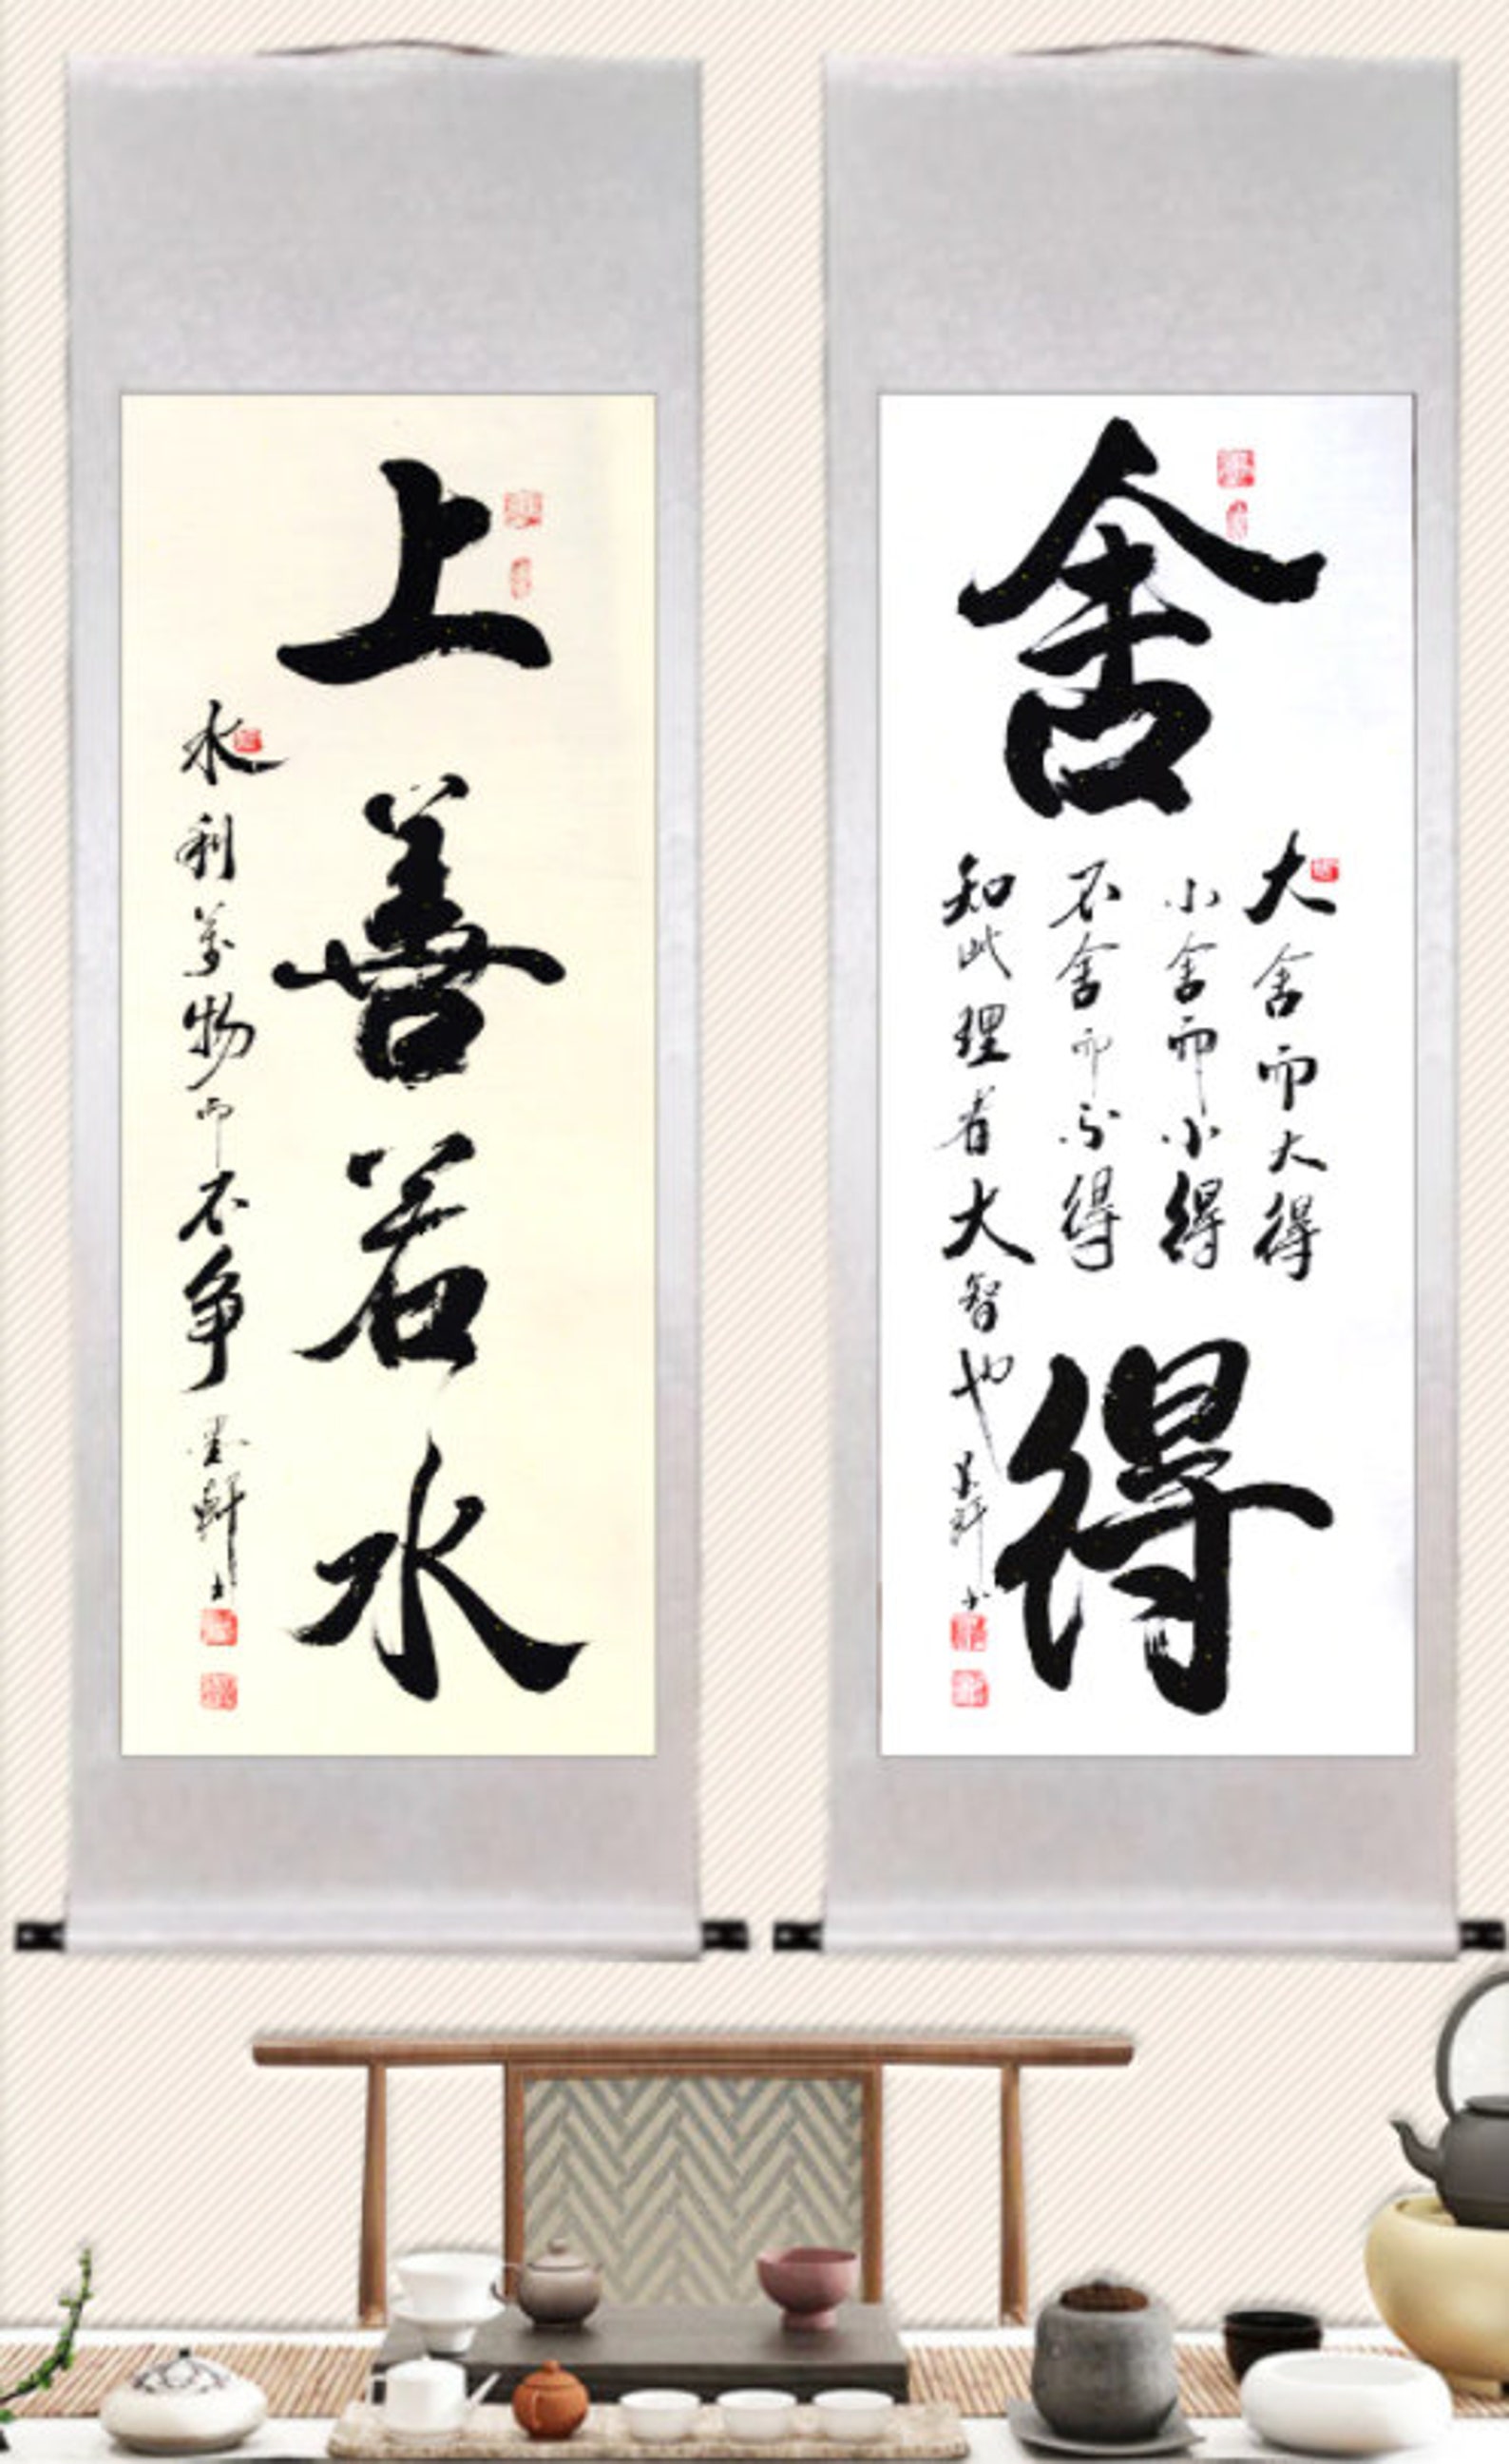 上善若水
水利萬物而不争
墨軒书
舍得
大舍而大得
小舍而小得
不舍而不得
知此理者大智也
墨軒书